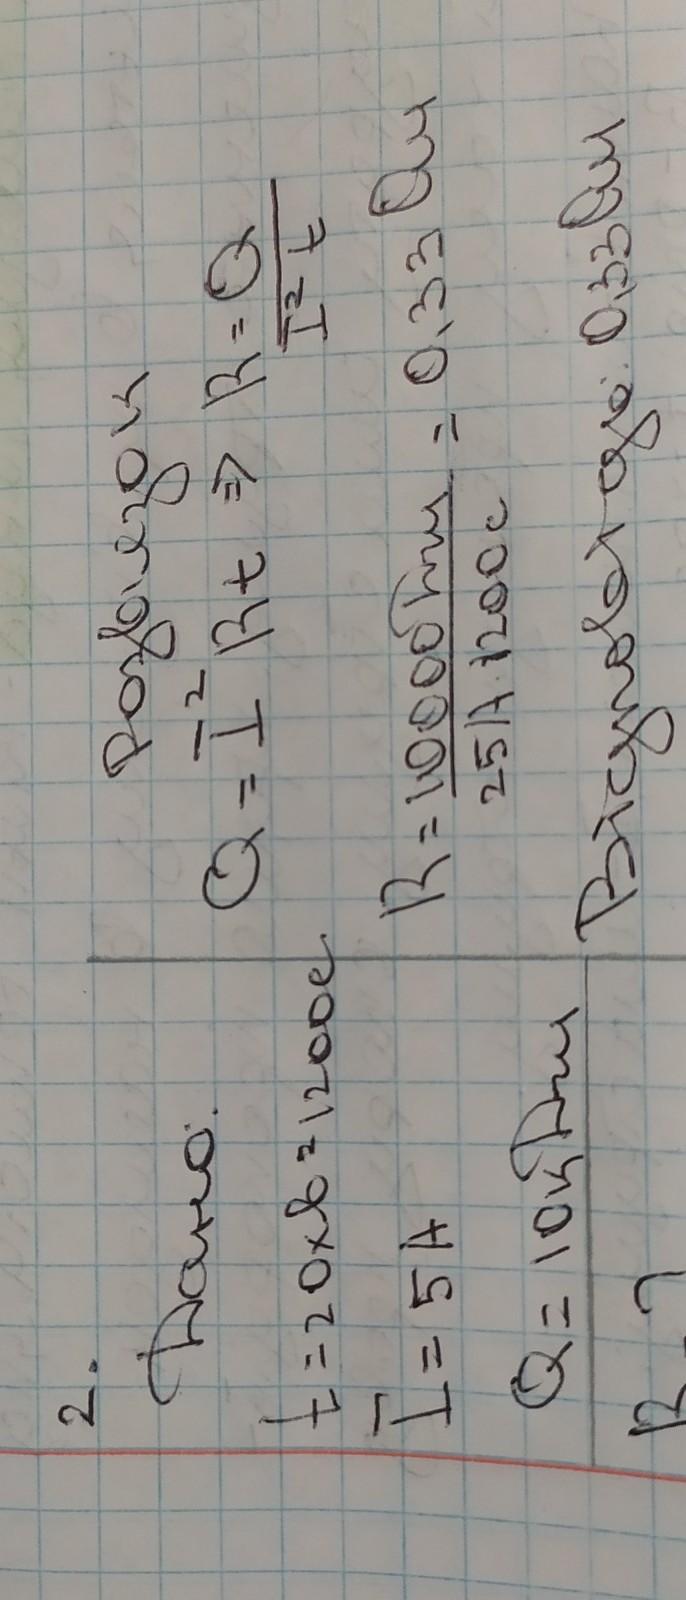 2.
Дано:
t = 20 хв = 1200 с
I = 5 А
Q = 10 кДж
R - ?
Розв'язок
Q = I² R t ⇒ R = Q / I² t
R = 10000 Дж / 25 А · 1200 с = 0,33 Ом
Відповідь: 0,33 Ом